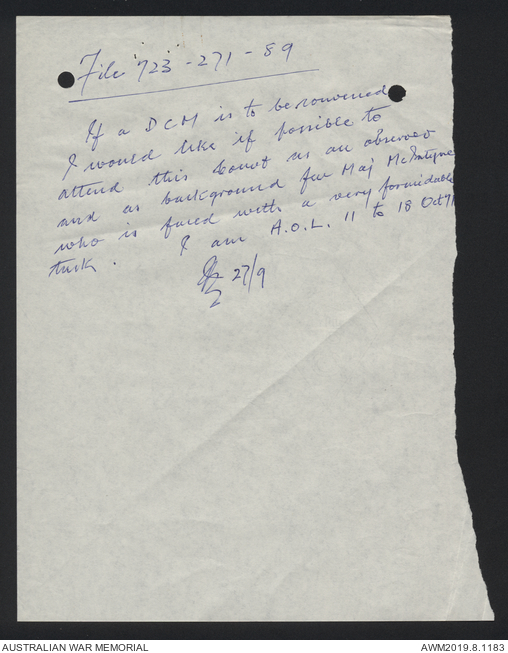 File 723-271-89
If a DCM is to be convened
I would like if possible to
attend this Court as an observer
and as background for Maj McIntyre
who is faced with a very formidable
task. I am A.O.L. 11 to 18 Oct 71
27/9
AUSTRALIAN WAR MEMORIAL
AWM2019.8.1183